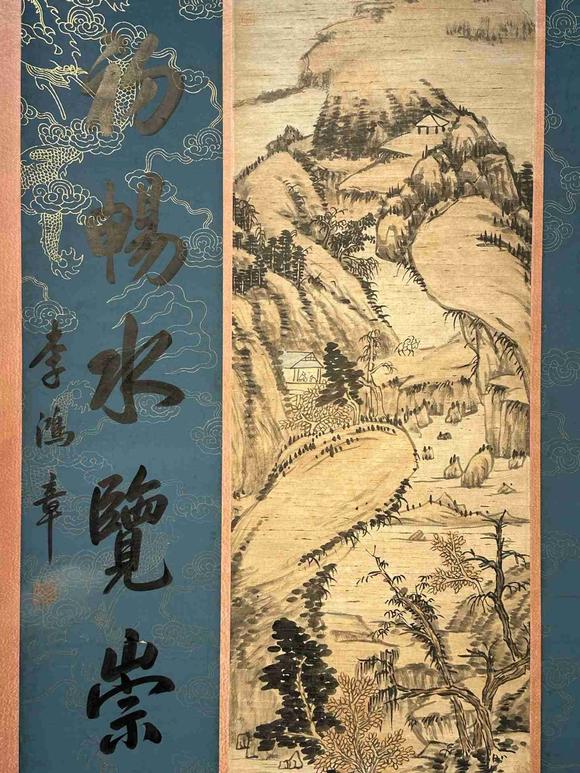 暢水覽崇
李鴻章